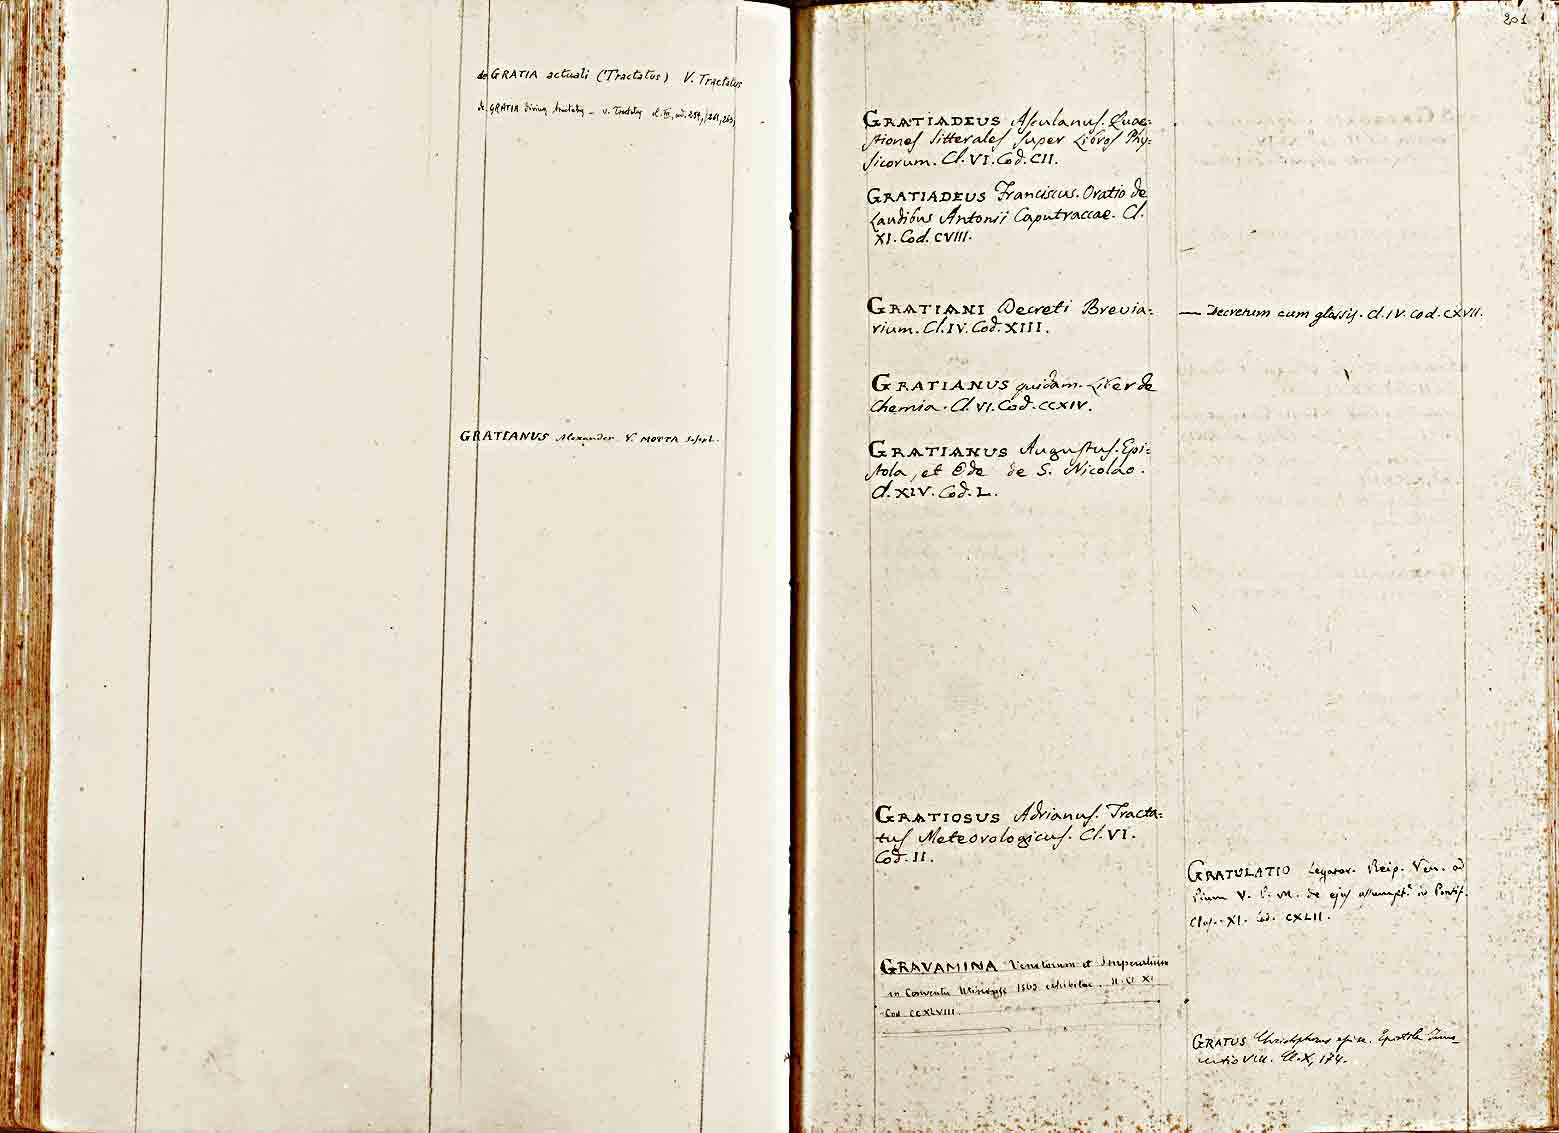 de GRATIA actuali (Tractatus) V. Tractatus
de GRATIA divina tractatus – v. Tractatus cl. III, cod. 259, 261, 263,
GRATIANUS Alexander V. MOTTA Joseph.
201
GRATIADEUS Asculanus. Quae=
stiones litterales super Libros Phy=
sicorum. Cl. VI. Cod. CII.
GRATIADEUS Franciscus. Oratio de
Laudibus Antonii Caputraccae. Cl.
XI. Cod. CVIII.
GRATIANI Decreti Brevia=
rium. Cl. IV. Cod. XIII.
GRATIANUS quidam. Liber de
Chemia. Cl. VI. Cod. CCXIV.
GRATIANUS Augustus. Epi=
stola, et Ode de S. Nicolao.
Cl. XIV. Cod. L.
GRATIOSUS Adrianus. Tracta=
tus Meteorologicus. Cl. VI.
Cod. II.
GRAVAMINA Venetorum et Imperialium
in Conventu exhibitae. Cl. XI
Cod. CCXLVIII.
— Decretum cum glossis. Cl. IV. Cod. CXVII.
GRATULATIO Legator. Reip. Ven. ad
Pium V. P. M. de ejus assumpt.e in Pontif.
Clas. XI. Cod. CXLII.
GRATUS Christophorus Epistola Inno_
centio VIII. Cl. X, 174.